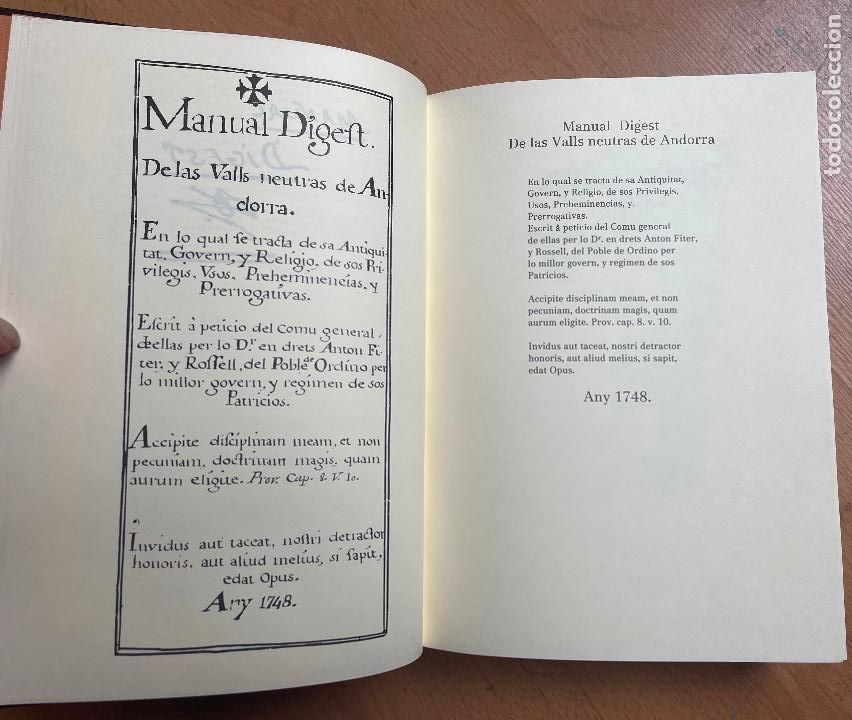 Manual Digeſt.
De las Valls neutras de An-
dorra.
En lo qual ſe tracta de sa Antiqui-
tat, Govern, y Religio, de sos Pri-
vilegis, Vsos, Preheminencias, y
Prerrogativas.
Eſcrit â peticio del Comu general,
de ellas per lo D.r en drets Anton Fi-
ter, y Roſſell, del Poble de Ordino per
lo millor govern, y regimen de sos
Patricios.
Accipite diſciplinam meam, et non
pecuniam, doctrinam magis, quam
aurum eligite. Prov. Cap. 8. V. 10.
Invidus aut taceat, noſtri detractor
honoris, aut aliud melius, si ſapit,
edat Opus.
Any 1748.
Manual Digest
De las Valls neutras de Andorra
En lo qual se tracta de sa Antiquitat,
Govern, y Religio, de sos Privilegis,
Usos, Preheminencias, y.
Prerrogativas.
Escrit â peticio del Comu general
de ellas per lo Dr. en drets Anton Fiter,
y Rossell, del Poble de Ordino per
lo millor govern, y regimen de sos
Patricios.
Accipite disciplinam meam, et non
pecuniam, doctrinam magis, quam
aurum eligite. Prov. cap. 8. v. 10.
Invidus aut taceat, nostri detractor
honoris, aut aliud melius, si sapit,
edat Opus.
Any 1748.
todocoleccion